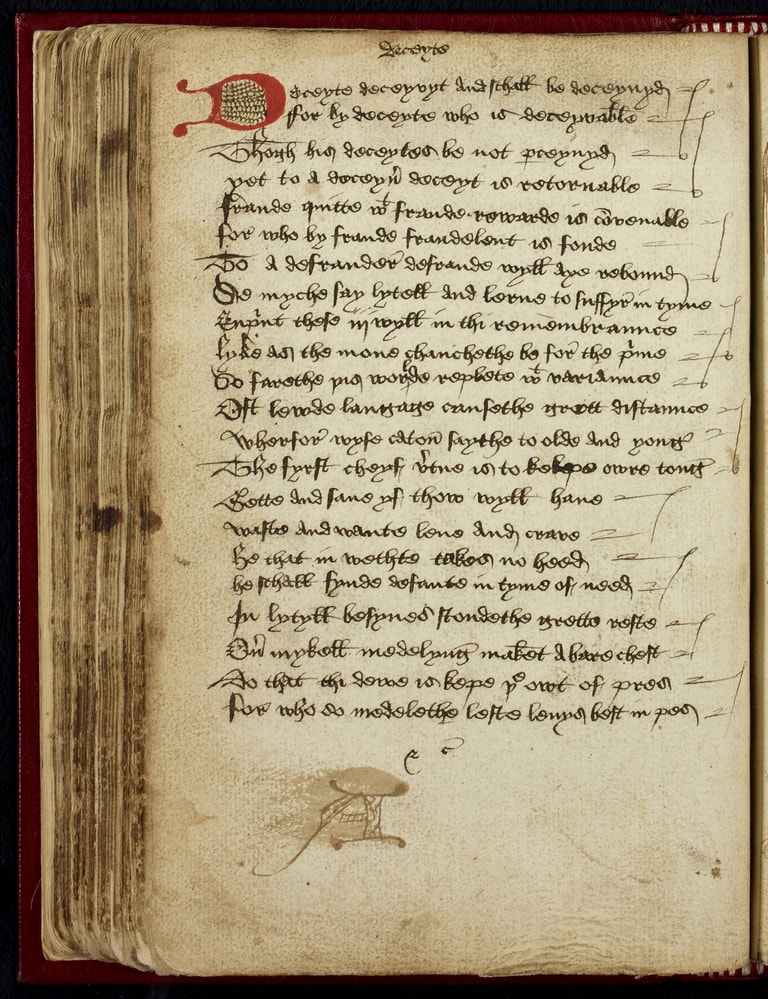 Deceyte
Deceyte deceyvyt And schall be deceyuyd
for by deceyte who is deceyvable
Thogh his deceytes be not pceyuyd
yet to A deceyu deceyt is retornable
fraude quitte wt fraude rewarde is covenable
for who by fraude fraudelent is fonde
To A defrauder defraude wyll Aye rebound
Se myche say lytell And lerne to suffyr in tyme
Enprynt these iij wyll in thi remembraunce
lyke as the mone chanchethe be for the pime
So farethe þis worlde replete wt variaunce
Oft lewde langage causethe grett distaunce
Wherfor wyse caton saythe to olde And yong
The fyrst cheyf vtue is to kepe owre tong
Gette And saue yf thow wyll haue
waste And wante leue And crave
He that in welthe takes no heed
he schall fynde defaute in tyme of need
In lytyll besynes stondethe grette reste
On mykell medelyng maket A bare chest
Do that thi dewe is kepe ye owt of pres
for who so medelethe leste leuys best in pes